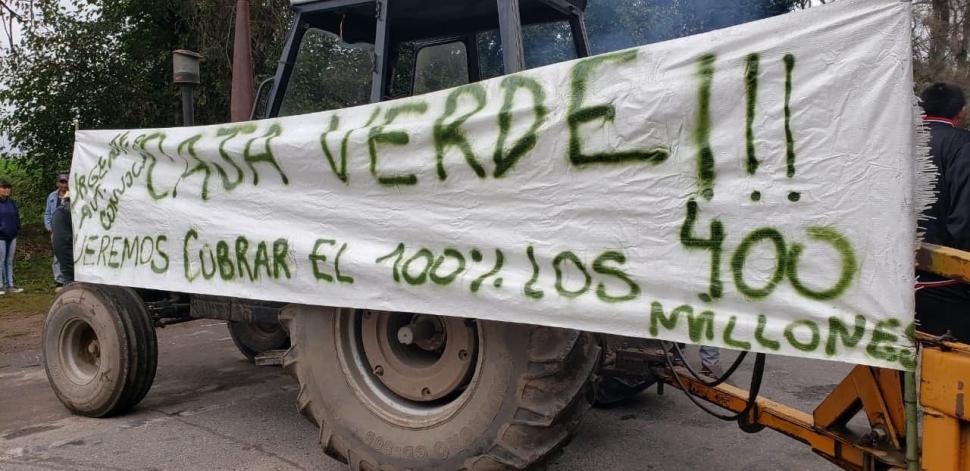 URGENTE
AVE.
CONVOCA
CAJA VERDE!!!
QUEREMOS COBRAR EL 100% LOS 400
MILLONES